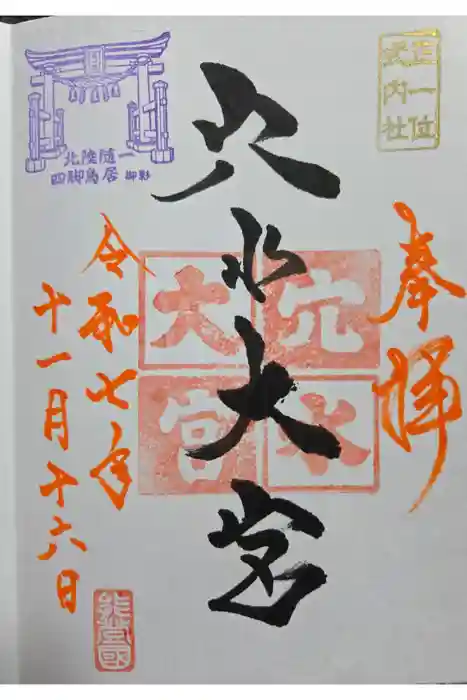 正一位
式内社
奉拝
穴水大宮
穴水
大宮
北陸随一
四脚鳥居 御影
令和七年
十一月十六日
能登国